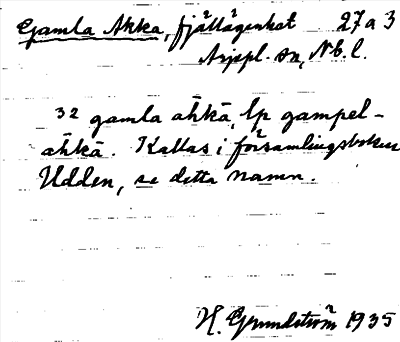 Gamla Akka, fjällägenhet 27 a 3
Arjepl. sn, Nb. l.
32 gamla ahkā, lp gampel-
ahkā. Kallas i församlingsboken
Udden, se detta namn.
H. Grundström 1935